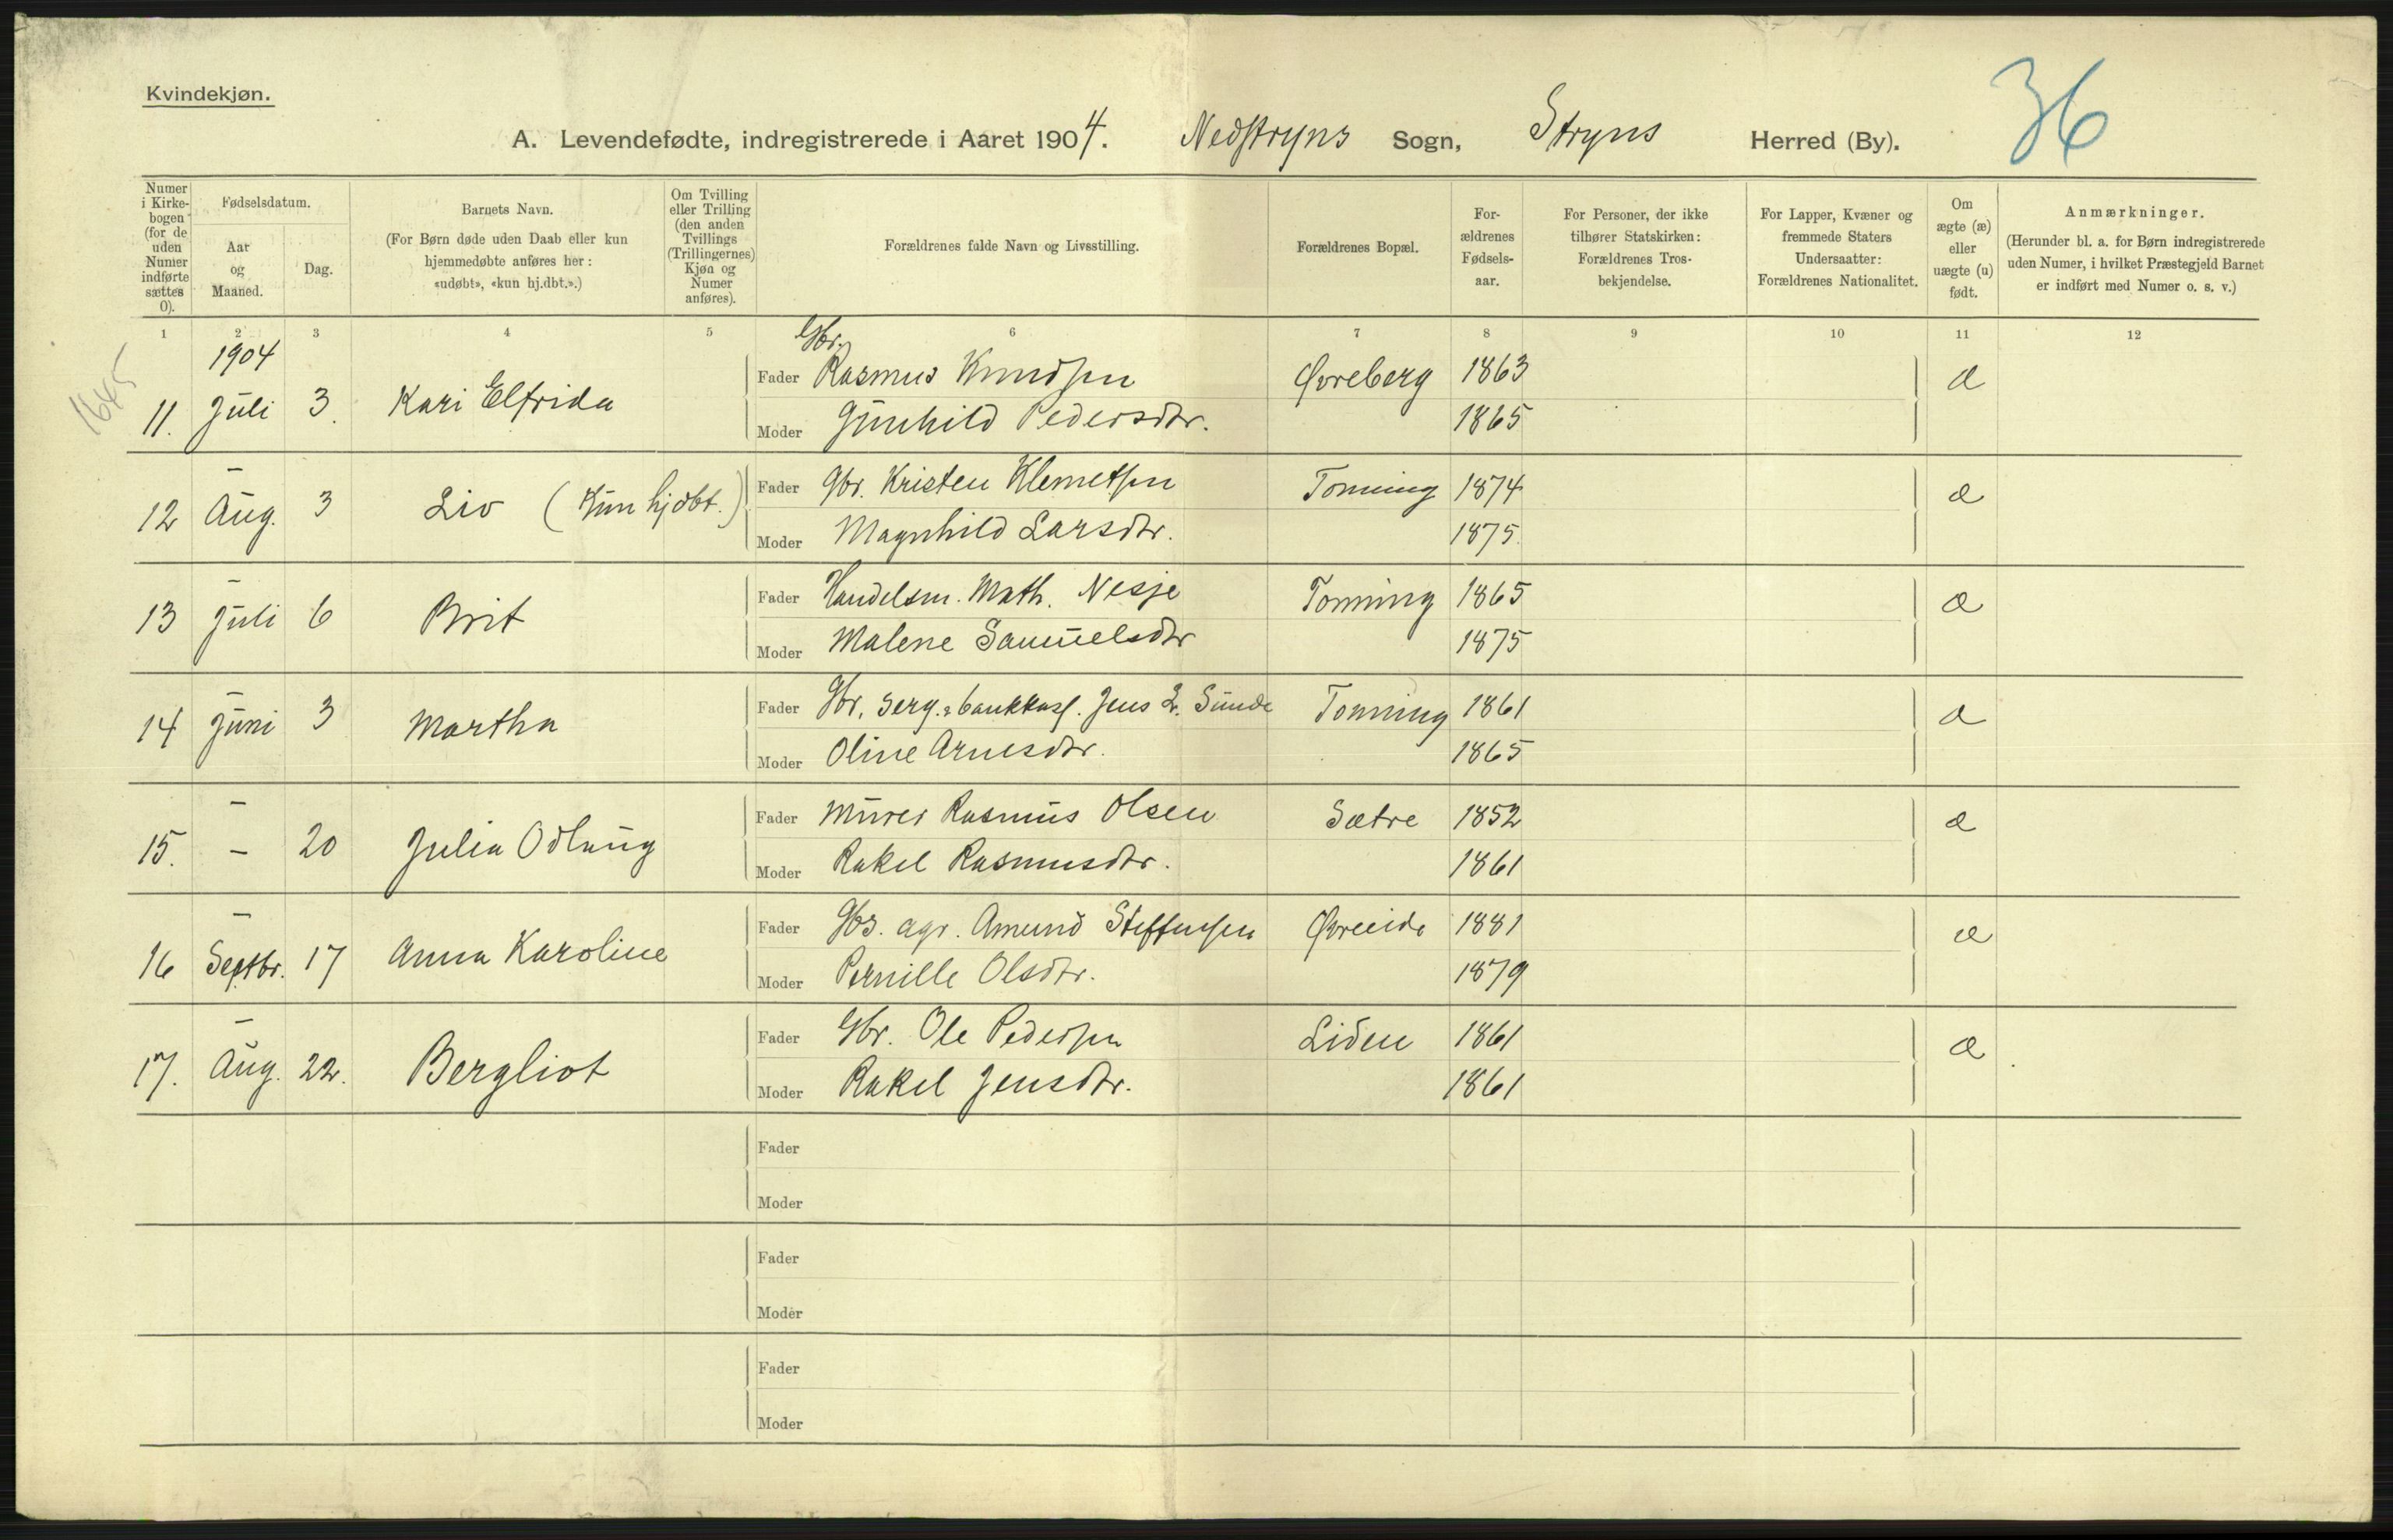 Kvindekjøn.
36
A. Levendefødte, indregistrerede i Aaret 1904. Nedstryns Sogn, Stryns Herred (By).
Numer i Kirke-bogen (for de uden Numer indførte sættes 0).
Fødselsdatum.
Aar og Maaned.
Dag.
Barnets Navn.
(For Børn døde uden Daab eller kun hjemmedøbte anføres her: «udøbt», «kun hj.dbt.».)
Om Tvilling eller Trilling (den anden Tvillings (Trillingernes) Kjøn og Numer anføres).
Forældrenes fulde Navn og Livsstilling.
Forældrenes Bopæl.
For-ældrenes Fødsels-aar.
For Personer, der ikke tilhører Statskirken: Forældrenes Tros-bekjendelse.
For Lapper, Kvæner og fremmede Staters Undersaatter: Forældrenes Nationalitet.
Om ægte (æ) eller uægte (u) født.
Anmærkninger.
(Herunder bl. a. for Børn indregistrerede uden Numer, i hvilket Præstegjeld Barnet er indført med Numer o. s. v.)
1 2 3 4 5 6 7 8 9 10 11 12
1645
1904
11. Juli 3. Kari Elfrida Fader Gbr. Rasmus Knudsen Øvreberg 1863 æ
Moder Gunhild Pedersdtr. 1865
12 – Aug. 3 Liv (Kun hjdbt.) Fader Gbr. Kristen Klemetsen Tonning 1874 æ
Moder Magnhild Larsdtr. 1875.
13 – Juli 6 Brit Fader Handelsm. Math. Nesje Tonning 1865 æ
Moder Malene Samuelsdtr 1875
14 – Juni 3 Martha Fader Gbr. Serg. & bankkass. Jens L. Sunde Tonning 1861 æ
Moder Oline Arnesdtr. 1865
15. – – 20 Julia Odlaug Fader Murer Rasmus Olsen Sætre 1852 æ
Moder Rakel Rasmusdtr. 1861
16 – Septbr. 17 Anna Karoline Fader Gbs. agr. Amund Steffensen Øvreeide 1881 æ
Moder Pernille Olsdtr. 1879
17. – Aug. 22. Bergliot Fader Gbr. Ole Pedersen Liden 1861 æ
Moder Rakel Jensdtr. 1861
Fader
Moder
Fader
Moder
Fader
Moder